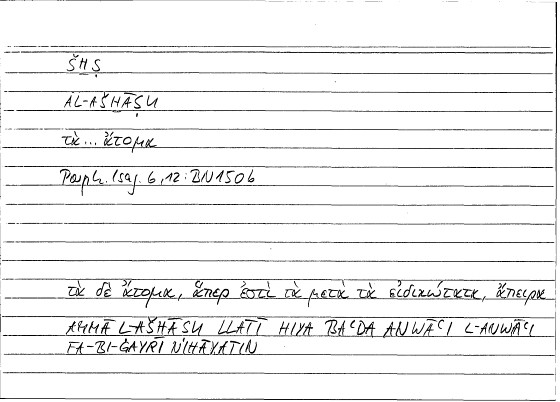 ŠH̱Ṣ
AL-AŠH̱ĀṢU
τὰ... ἄτομα
Porph. Isag. 6,12 : BN150b
τὰ δὲ ἄτομα, ἅπερ ἐστὶ τὰ μετὰ τὰ εἰδικώτατα, ἄπειρα
AMMĀ L-AŠH̱ĀṢU LLATĪ HIYA BAʿDA ANWĀʿI L-ANWĀʿI
FA-BI-ĠAYRI NIHĀYATIN